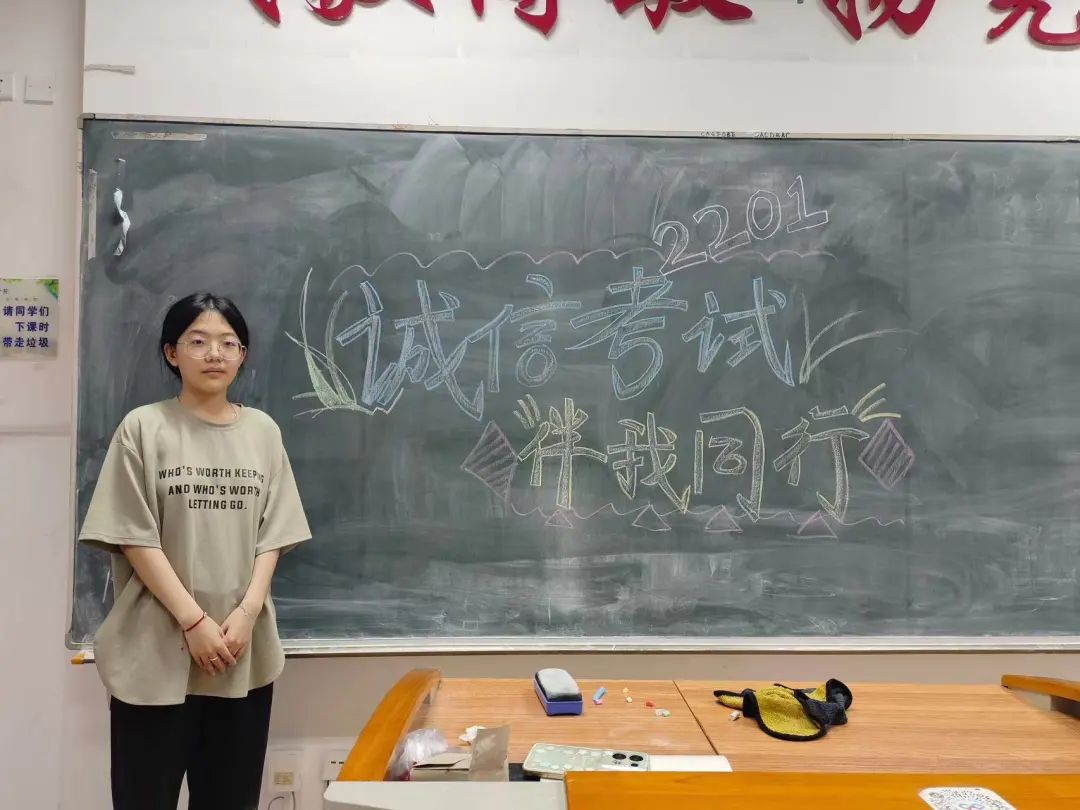 2201
诚信考试
伴我同行
请同学们
下课时
带走垃圾
WHO'S WORTH KEEPING
AND WHO'S WORTH
LETTING GO.